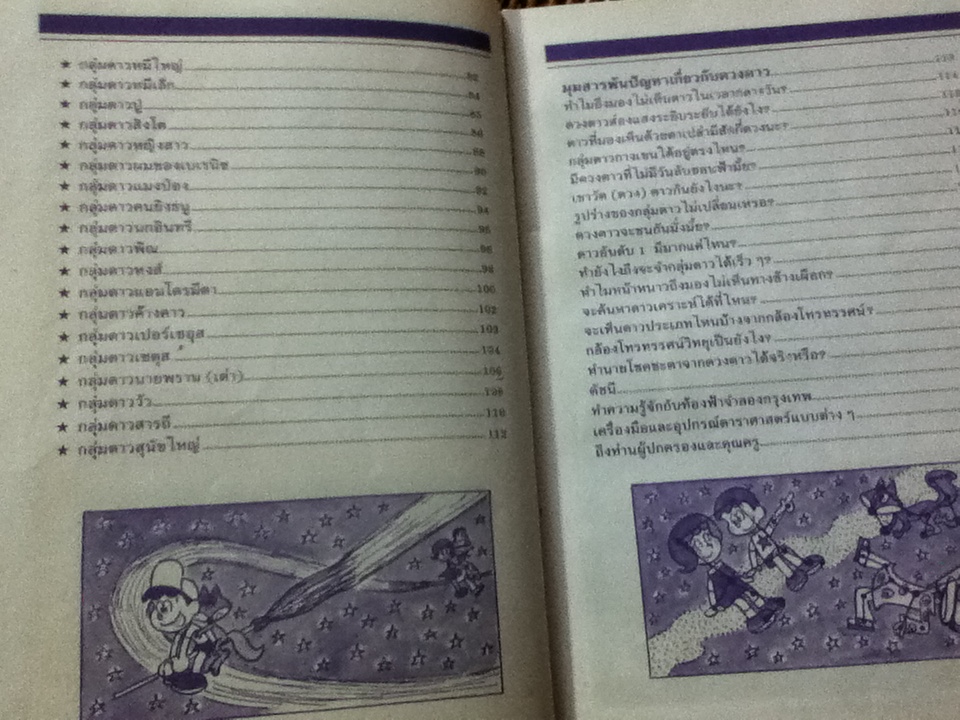 ★ กลุ่มดาวหมีใหญ่ 82
★ กลุ่มดาวหมีเล็ก 84
★ กลุ่มดาวปู 85
★ กลุ่มดาวสิงโต 86
★ กลุ่มดาวหญิงสาว 88
★ กลุ่มดาวผมของเบเรนิซ 90
★ กลุ่มดาวแมงป่อง 92
★ กลุ่มดาวคนยิงธนู 94
★ กลุ่มดาวนกอินทรี 95
★ กลุ่มดาวพิณ 96
★ กลุ่มดาวหงส์ 98
★ กลุ่มดาวแอนโดรมีดา 100
★ กลุ่มดาวค้างคาว 102
★ กลุ่มดาวเปอร์เซอุส 103
★ กลุ่มดาวเซตุส 104
★ กลุ่มดาวนายพราน (เต่า) 106
★ กลุ่มดาววัว 108
★ กลุ่มดาวสารถี 110
★ กลุ่มดาวสุนัขใหญ่ 112
มุมสารพันปัญหาเกี่ยวกับดวงดาว
ทำไมถึงมองไม่เห็นดาวในเวลากลางวัน?
ดวงดาวส่องแสงระยิบระยับได้ยังไง?
ดาวที่มองเห็นด้วยตาเปล่ามีสักกี่ดวงนะ?
กลุ่มดาวกางเขนใต้อยู่ตรงไหน?
มีดวงดาวที่ไม่มีวันลับขอบฟ้ามั้ย?
เขาวัด (ดวง) ดาวกันยังไงนะ?
รูปร่างของกลุ่มดาวไม่เปลี่ยนเหรอ?
ดวงดาวจะชนกันมั่งมั้ย?
ดาวอันดับ 1 มีมากแค่ไหน?
ทำยังไงถึงจะจำกลุ่มดาวได้เร็ว ๆ?
ทำไมหน้าหนาวถึงมองไม่เห็นทางช้างเผือก?
จะค้นหาดาวเคราะห์ได้ที่ไหน?
จะเห็นดาวประเภทไหนบ้างจากกล้องโทรทรรศน์?
กล้องโทรทรรศน์วิทยุเป็นยังไง?
ทำนายโชคชะตาจากดวงดาวได้จริงหรือ?
ดัชนี
ทำความรู้จักกับท้องฟ้าจำลองกรุงเทพ
เครื่องมือและอุปกรณ์ดาราศาสตร์แบบต่าง ๆ
ถึงท่านผู้ปกครองและคุณครู